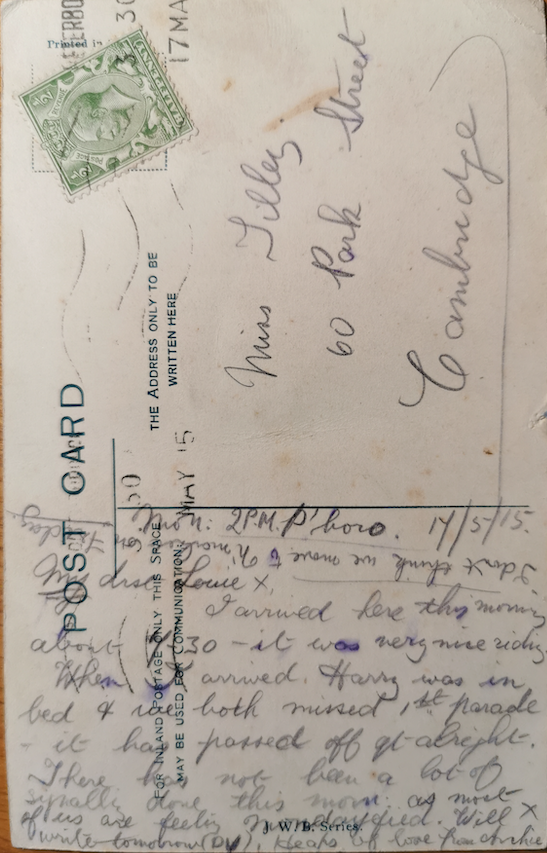 POST CARD
Printed in
THE ADDRESS ONLY TO BE
WRITTEN HERE
FOR INLAND POSTAGE ONLY THIS SPACE
MAY BE USED FOR COMMUNICATION
30
17 MA
30
MAY 15
HALFPENNY
POSTAGE
REVENUE
½
½
Miss Tilley
60 Park Street
Cambridge
Mon: 2PM. P'boro. 17/5/15.
I don't think we move to
My drst Louie x,
I arrived here this morning
about 30 - it was very nice riding.
When I arrived, Harry was in
bed & we both missed 1st parade
- it has passed off qt alright.
There has not been a lot of
signally done this morn: as most
of us are feeling Mondayfied. Will x
write tomorrow (DV), Heaps of love from
J.W.B. Series.